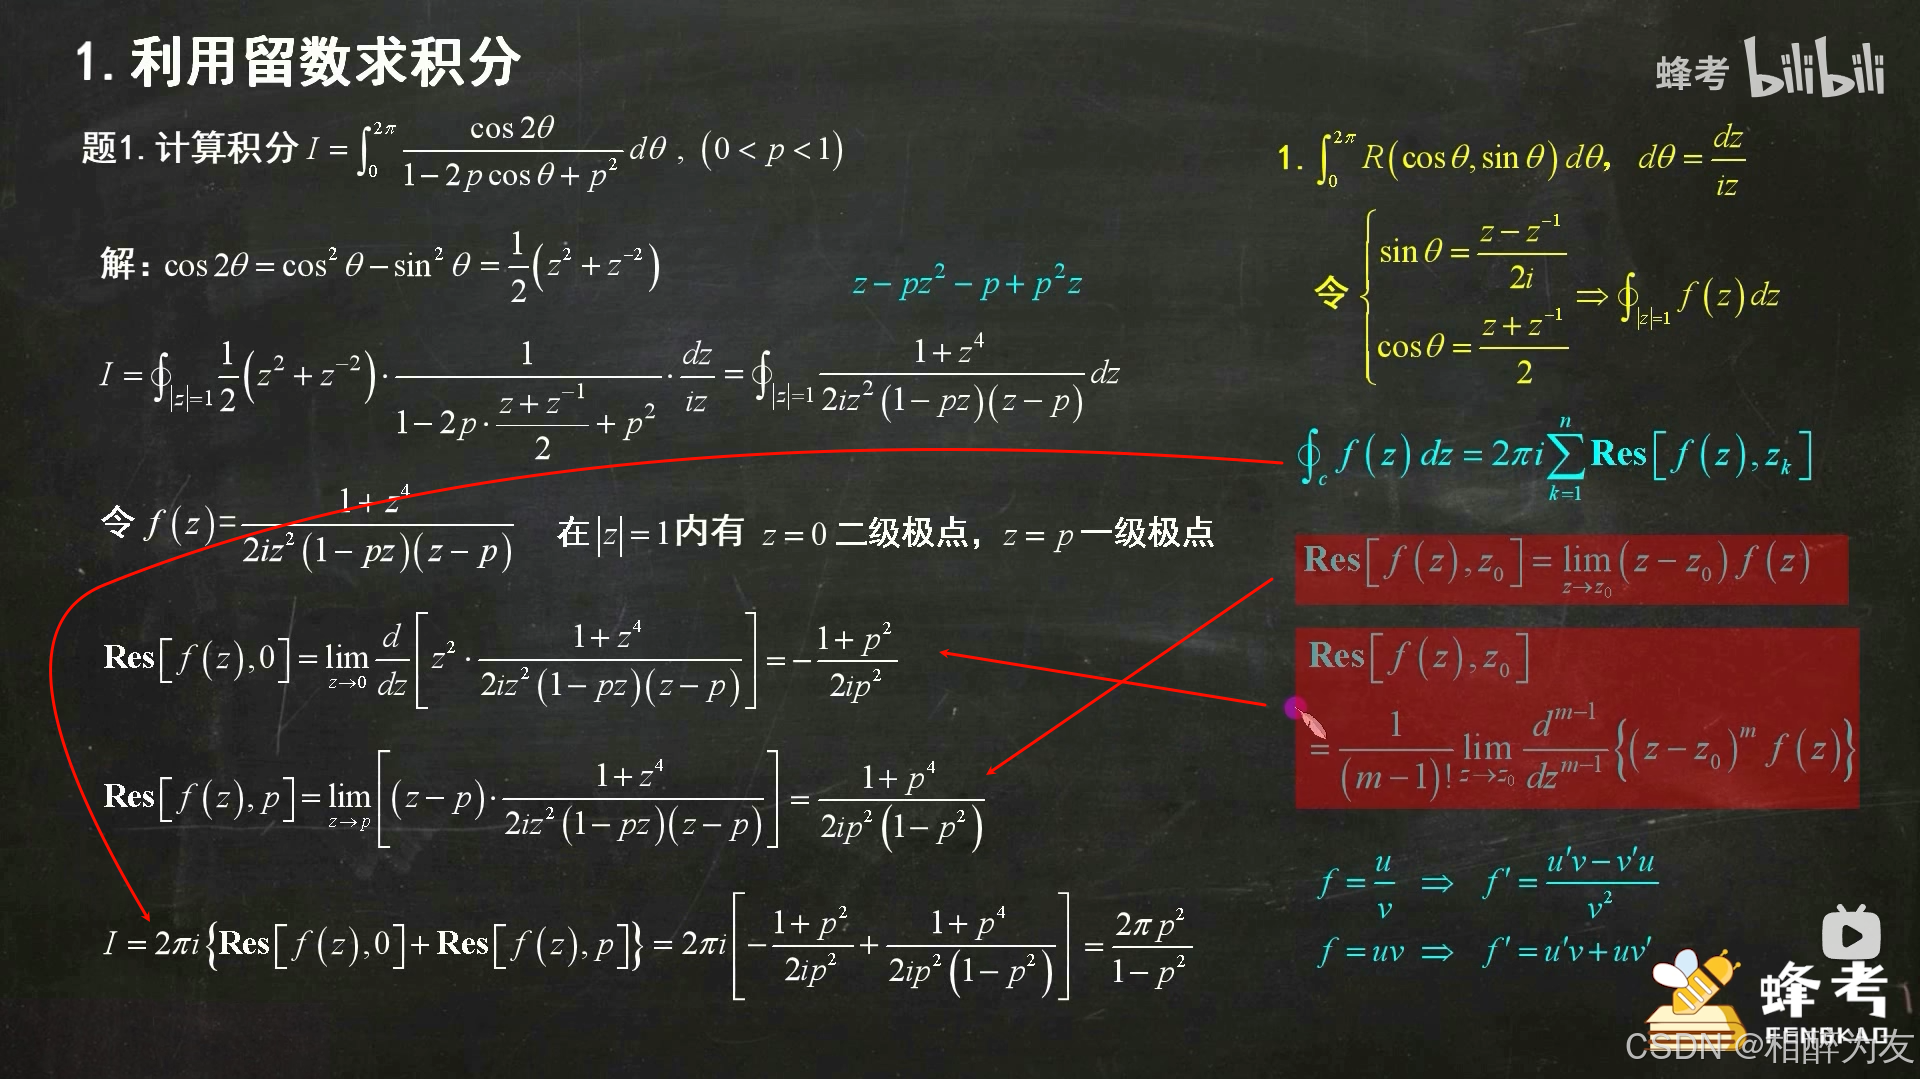 1.利用留数求积分
蜂考 bilibili
题1.计算积分 I = ∫₀^{2π} cos2θ / (1 − 2p cosθ + p²) dθ , (0 < p < 1)
解：cos2θ = cos²θ − sin²θ = 1/2 (z² + z⁻²)
z − pz² − p + p²z
I = ∮_{|z|=1} 1/2 (z² + z⁻²) · 1 / (1 − 2p · (z + z⁻¹)/2 + p²) · dz/iz = ∮_{|z|=1} (1 + z⁴) / (2iz²(1 − pz)(z − p)) dz
令 f(z) = (1 + z⁴) / (2iz²(1 − pz)(z − p)) 在 |z| = 1 内有 z = 0 二级极点，z = p 一级极点
Res[f(z),0] = lim_{z→0} d/dz [z² · (1 + z⁴) / (2iz²(1 − pz)(z − p))] = − (1 + p²) / 2ip²
Res[f(z),p] = lim_{z→p} [(z − p) · (1 + z⁴) / (2iz²(1 − pz)(z − p))] = (1 + p⁴) / (2ip²(1 − p²))
I = 2πi{Res[f(z),0] + Res[f(z),p]} = 2πi[− (1 + p²) / 2ip² + (1 + p⁴) / (2ip²(1 − p²))] = 2πp² / (1 − p²)
1. ∫₀^{2π} R(cosθ, sinθ) dθ， dθ = dz/iz
令 { sinθ = (z − z⁻¹) / 2i
cosθ = (z + z⁻¹) / 2 ⇒ ∮_{|z|=1} f(z) dz
∮_c f(z) dz = 2πi ∑_{k=1}^{n} Res[f(z), z_k]
Res[f(z), z₀] = lim_{z→z₀} (z − z₀) f(z)
Res[f(z), z₀]
= 1/(m − 1)! lim_{z→z₀} d^{m−1}/dz^{m−1} {(z − z₀)^m f(z)}
f = u/v ⇒ f′ = (u′v − v′u) / v²
f = uv ⇒ f′ = u′v + uv′
蜂考
FENGKAO
CSDN @相醉为友